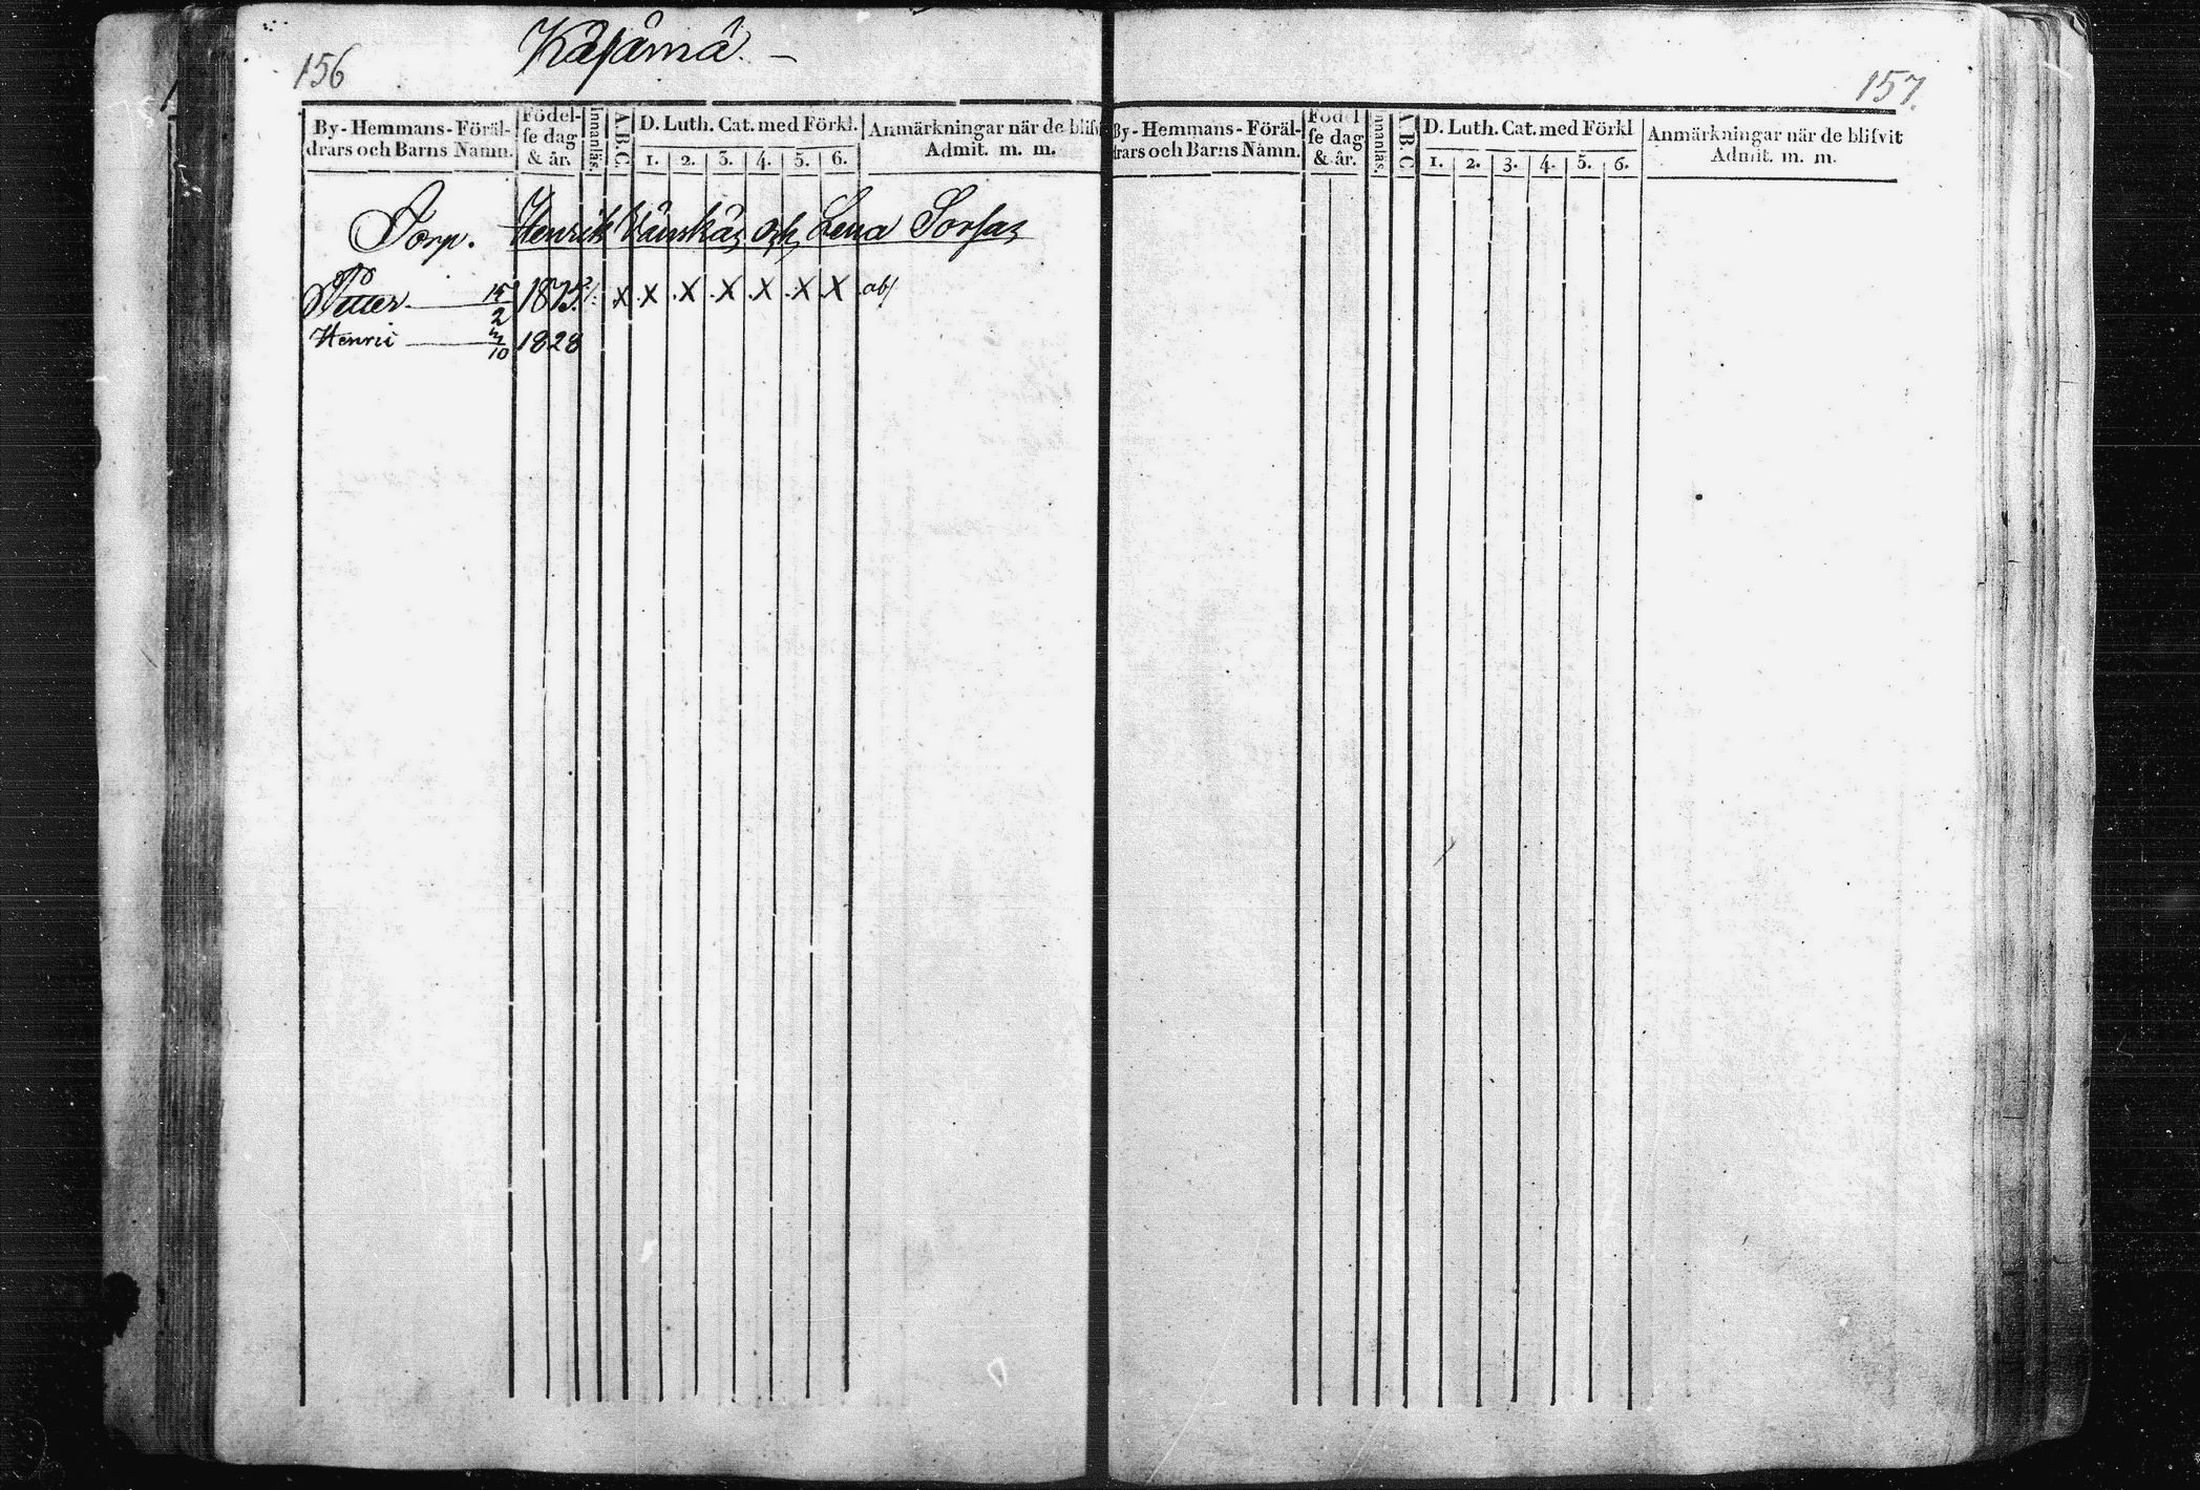 156
Käsämä. —
By-Hemmans-Föräl-
drars och Barns Namn.
Födel-
se dag
& år.
Innanläs.
A.B.C.
D. Luth. Cat. med Förkl.
1. 2. 3. 4. 5. 6.
Anmärkningar när de blifv
Admit. m. m.
Torp. Henrik och Lena Sorsa
Petter 15/2 1815. X X X X X X X abs
Henric 10 1828
157.
By-Hemmans-Föräl-
drars och Barns Namn.
Födel
se dag
& år.
Innanläs.
A.B.C.
D. Luth. Cat. med Förkl
1. 2. 3. 4. 5. 6.
Anmärkningar när de blifvit
Admit. m. m.